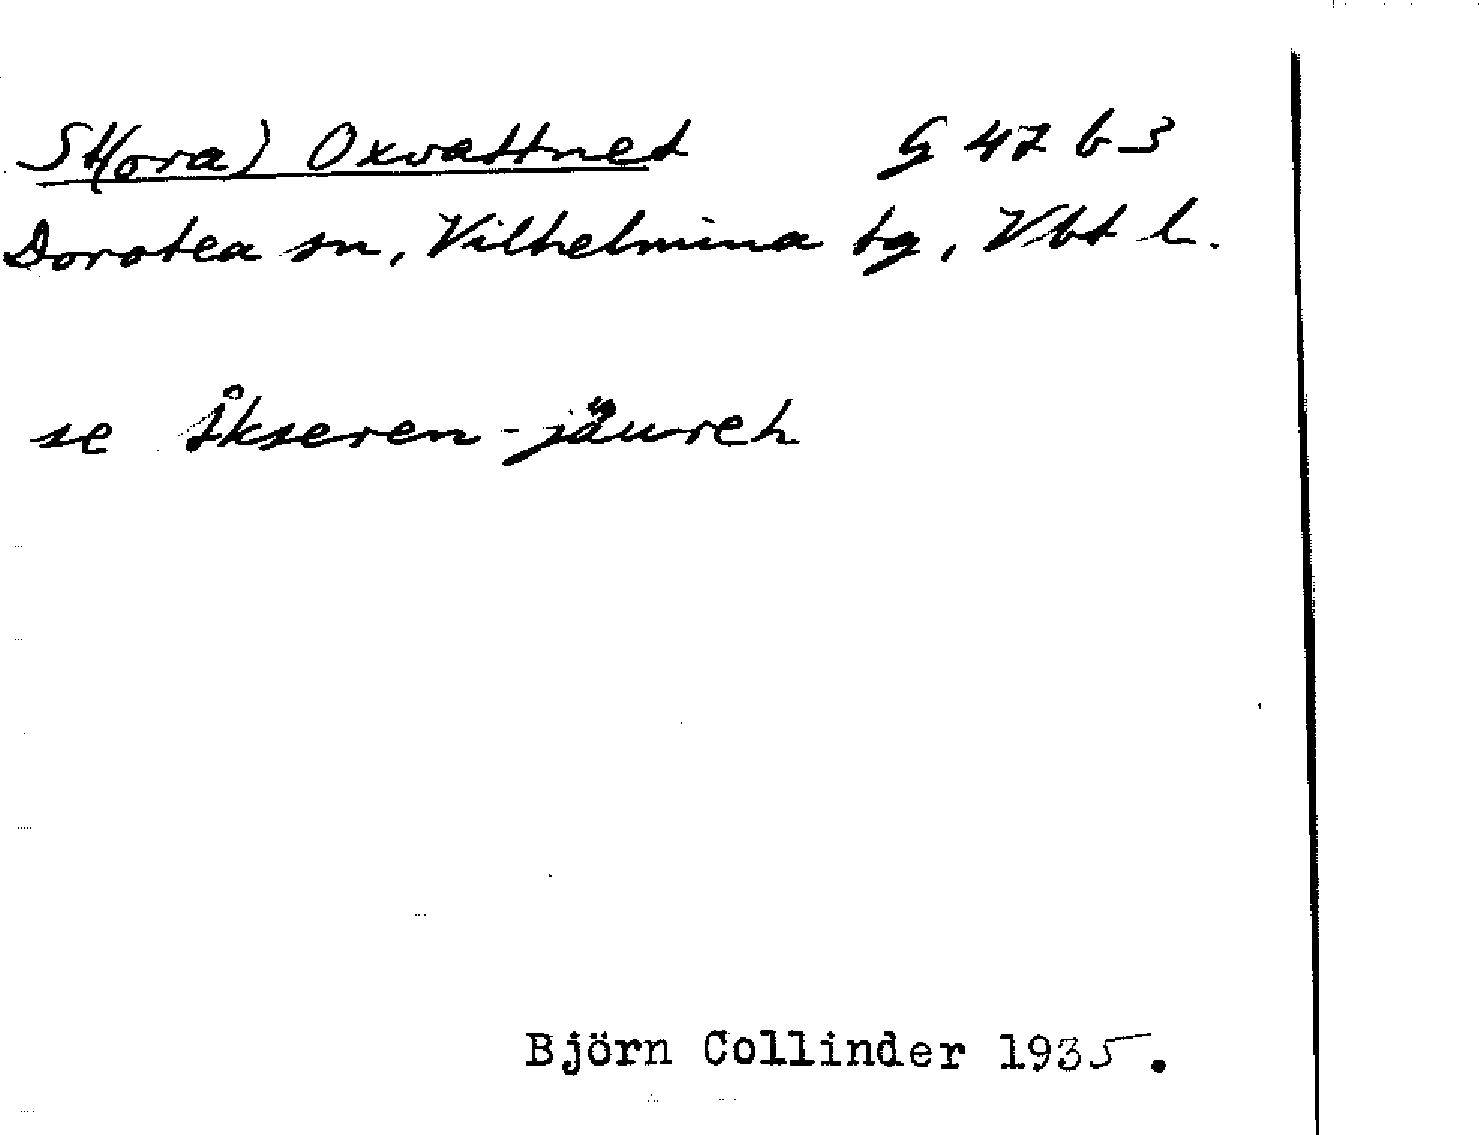 St(ora) Oxvattnet G 47 b 3
Dorotea sn, Vilhelmina tg, Vbt l.
se Åkseren-jäureh
Björn Collinder 1935.